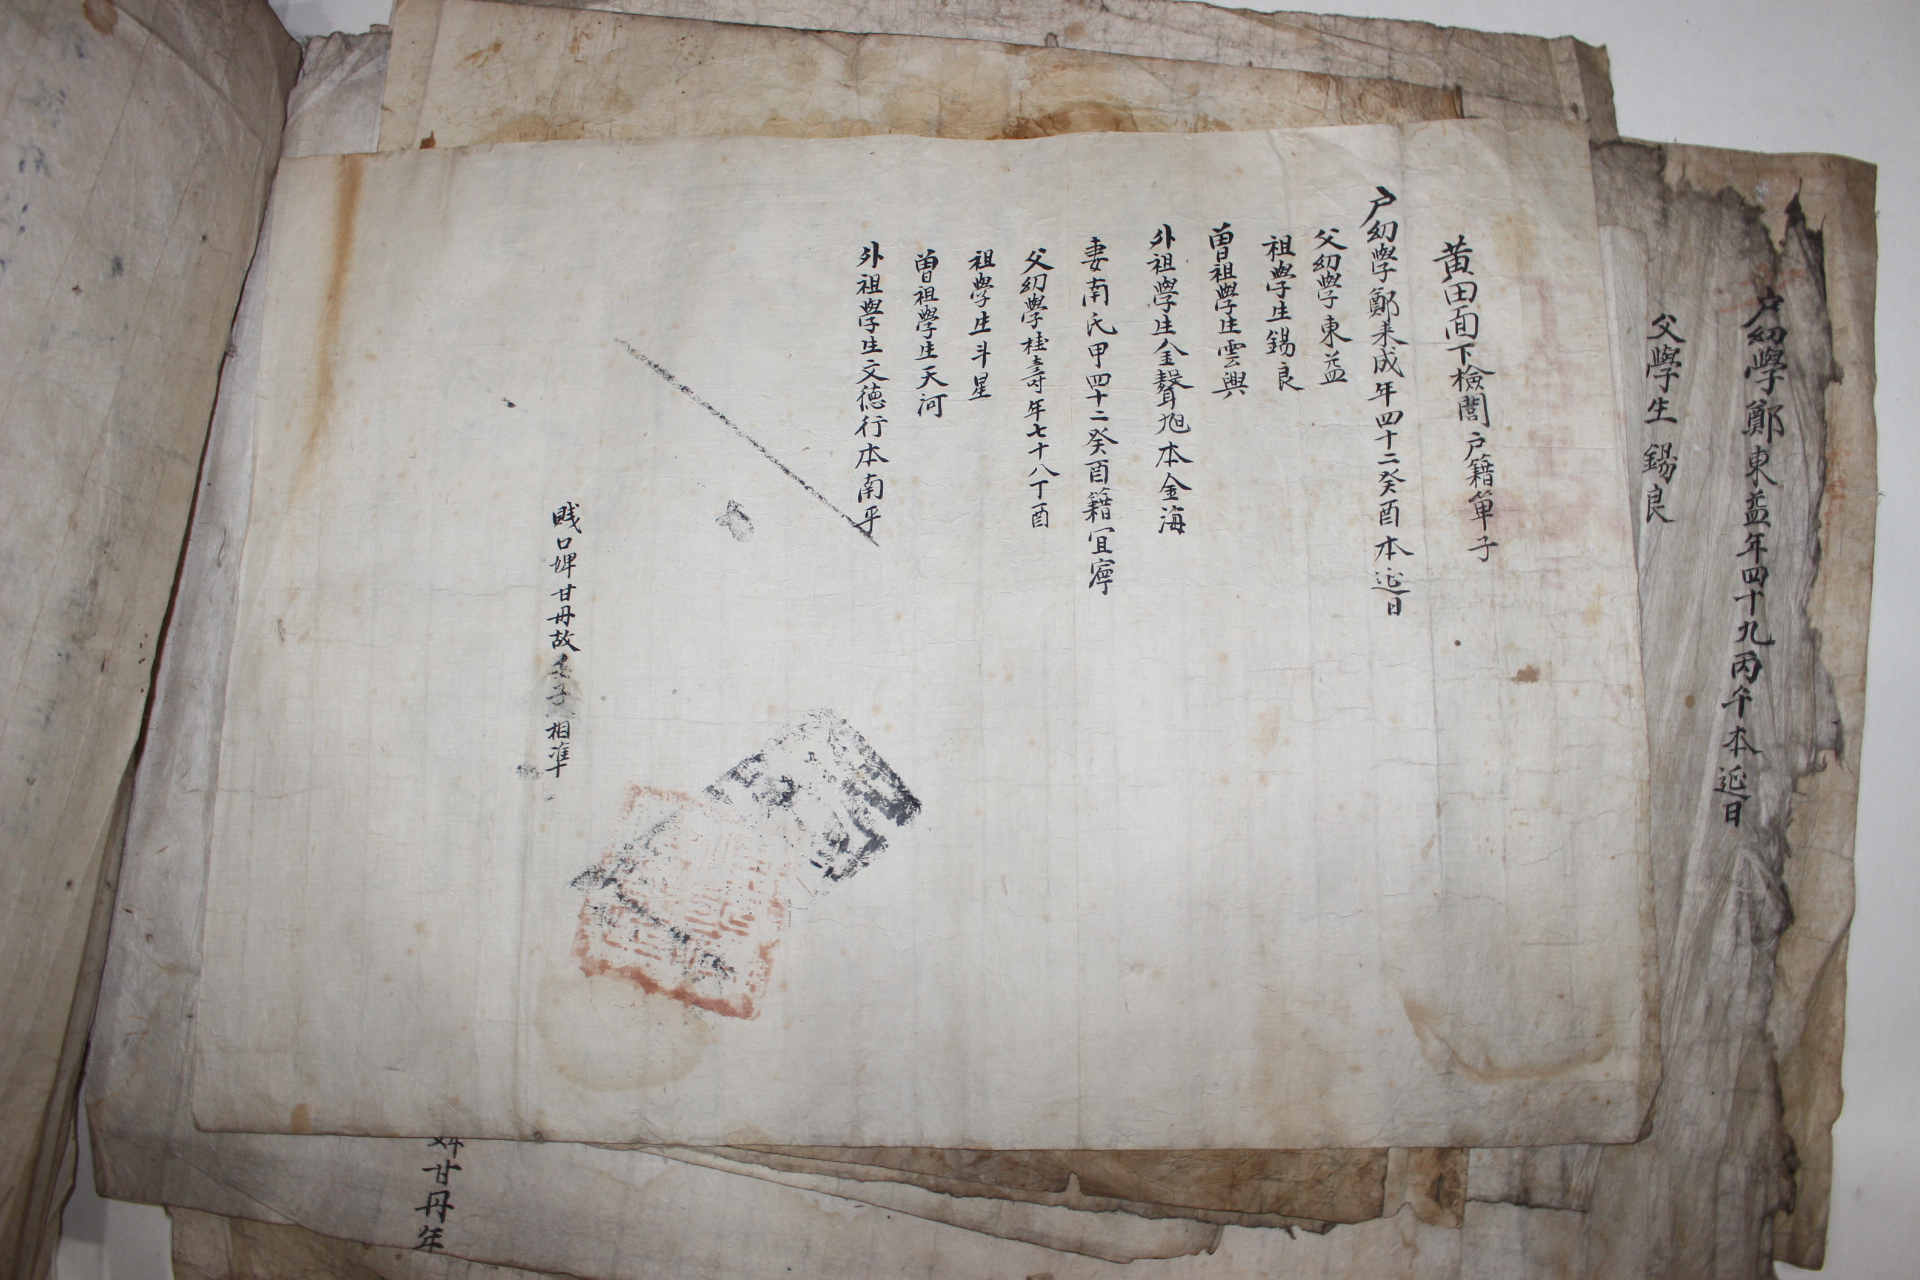 戶幼學鄭東益年四十九丙午本延日
父學生錫良
黃田面下檢誾戶籍單子
戶幼學鄭來成年四十二癸酉本延日
父幼學東益
祖學生錫良
曽祖學生雲興
外祖學生金聲旭本金海
妻南氏甲四十二癸酉籍宜寧
父幼學桂壽年七十八丁酉
祖學生斗星
曽祖學生天河
外祖學生文德行本南平
賤口婢甘丹故壬子相準
婢甘丹年